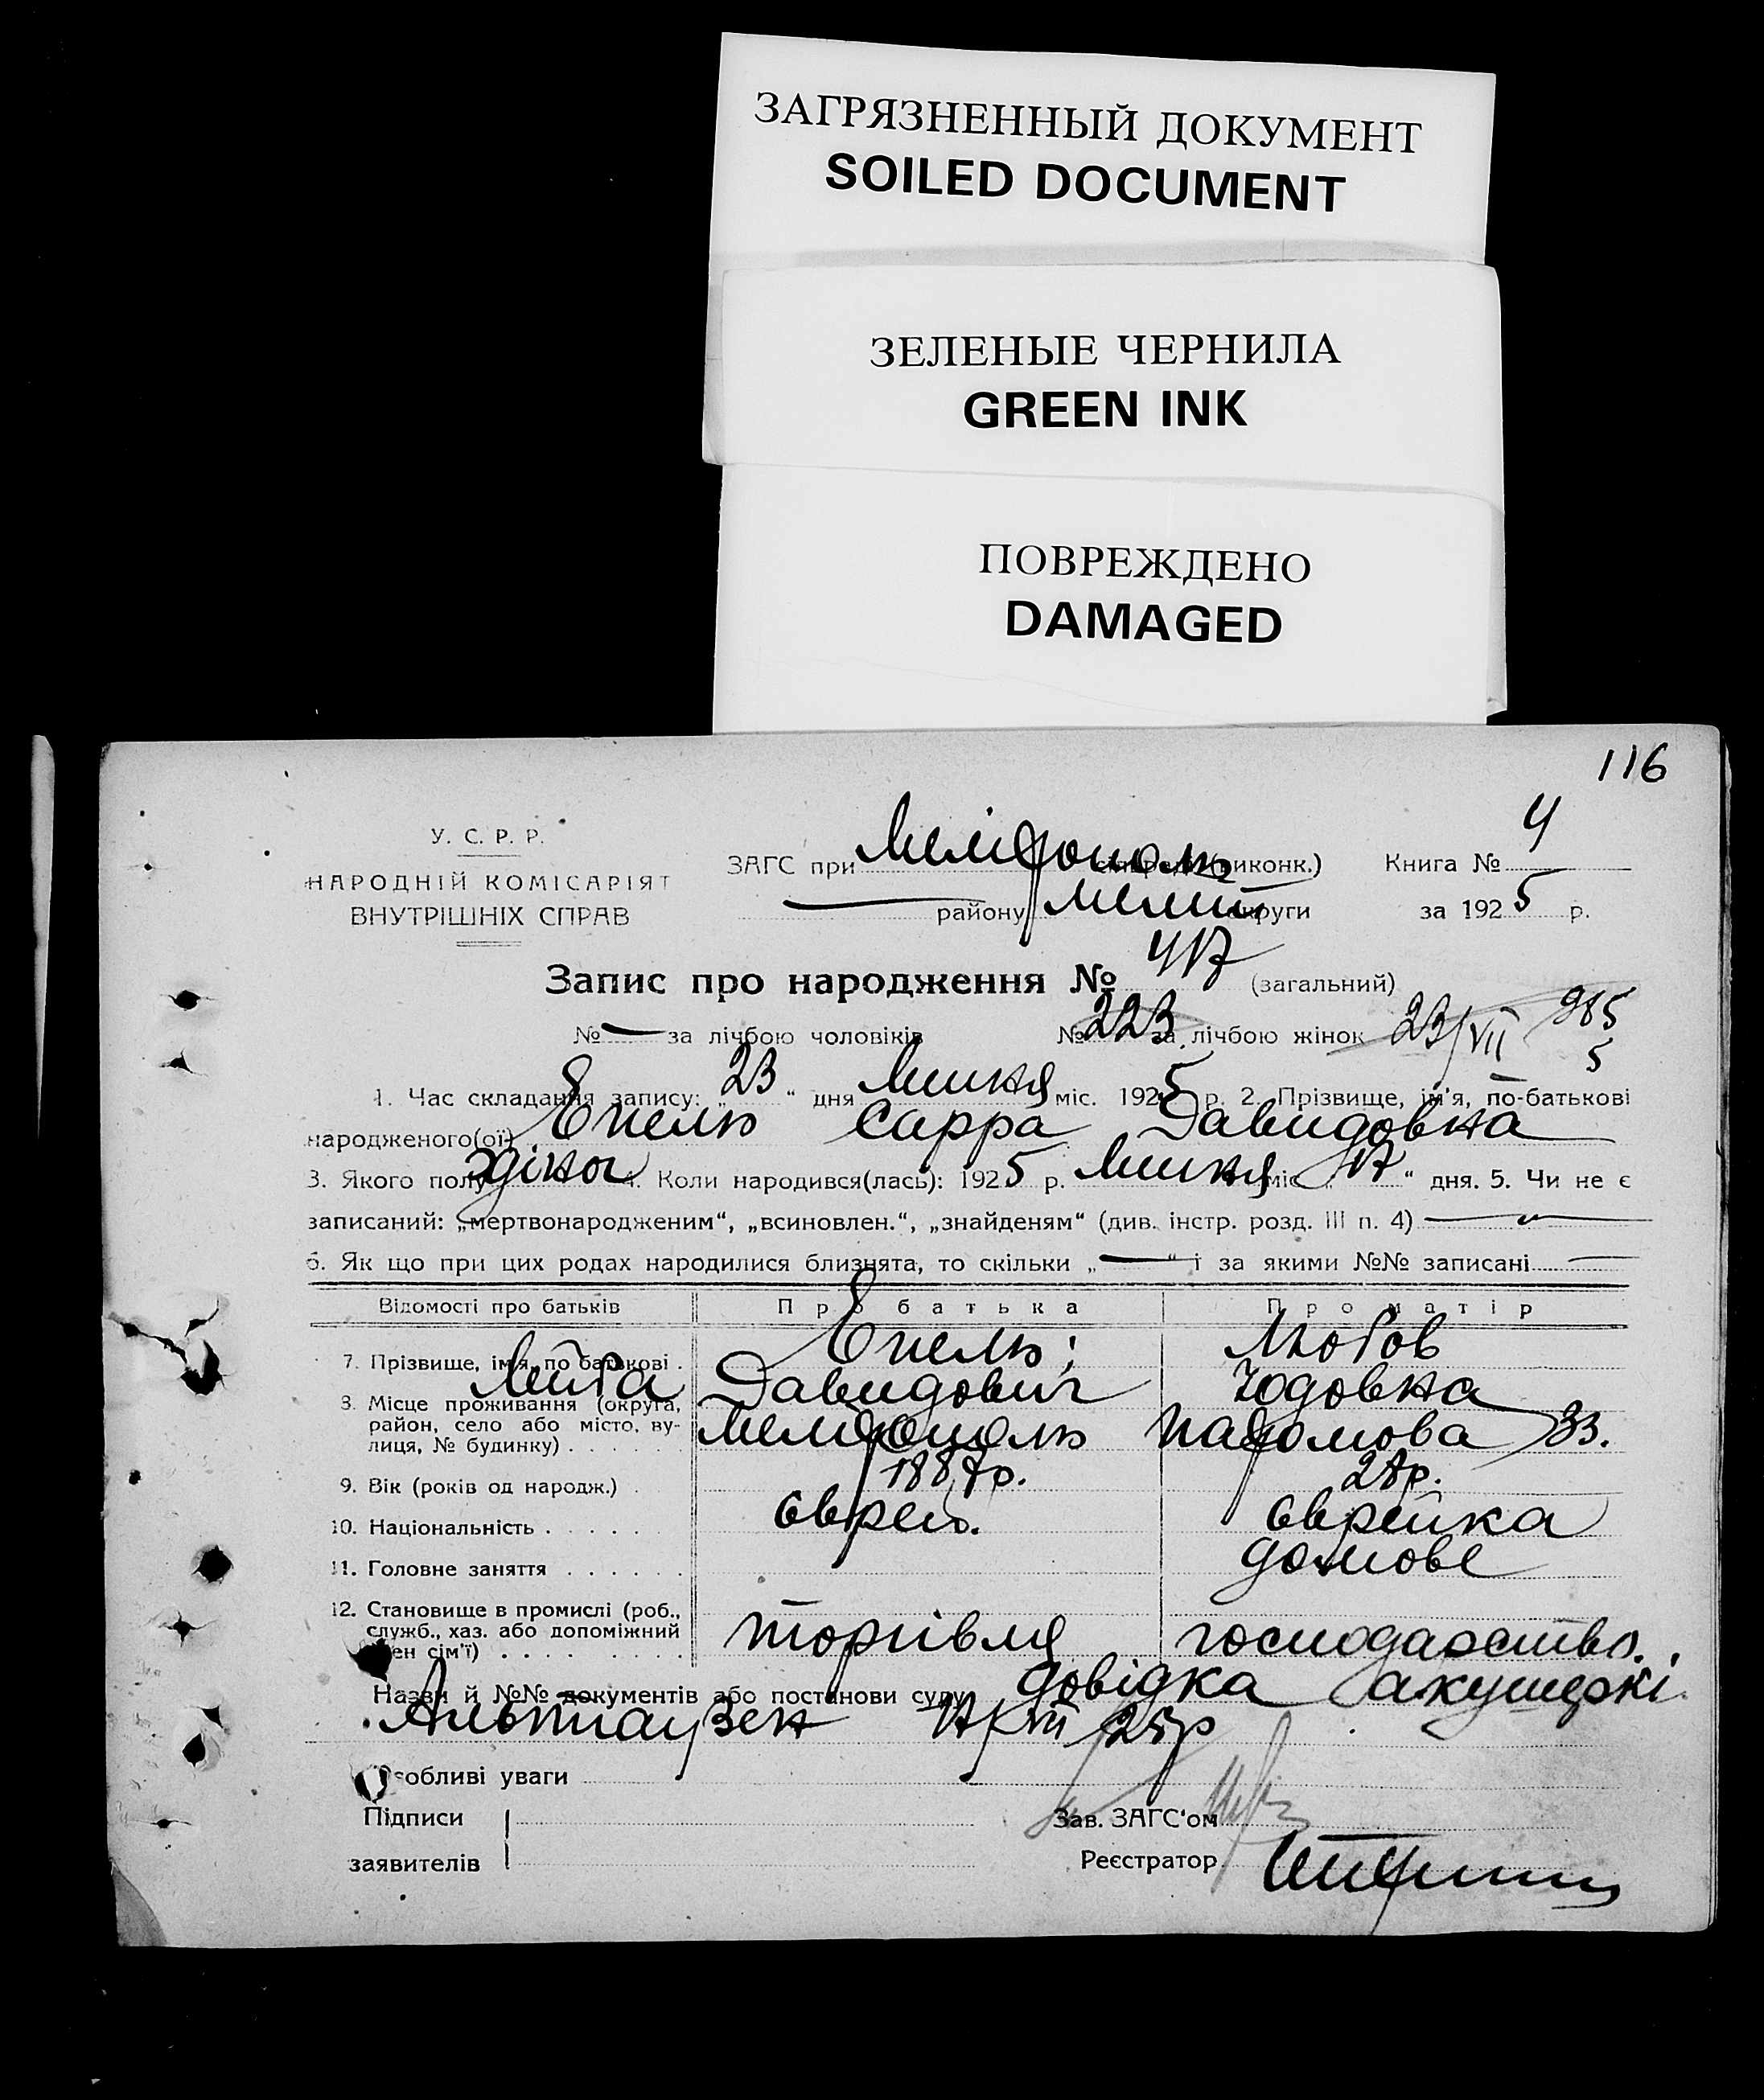 ЗАГРЯЗНЕННЫЙ ДОКУМЕНТ
SOILED DOCUMENT
ЗЕЛЕНЫЕ ЧЕРНИЛА
GREEN INK
ПОВРЕЖДЕНО
DAMAGED
116
У. С. Р. Р.
НАРОДНІЙ КОМІСАРІЯТ
ВНУТРІШНІХ СПРАВ
ЗАГС при Мелітополь (виконк.) Книга № 4
району Мелит округи за 1925 р.
Запис про народження № (загальний)
№ — за лічбою чоловіків № 223 за лічбою жінок 23/VII
1. Час складання запису: „23“ дня Липня міс. 1925 р. 2. Прізвище, ім'я, по-батькові
народженого(ої) Епель Сарра Давидовна
3. Якого полу жіноч 4. Коли народився(лась): 1925 р. Липня міс. „17“ дня. 5. Чи не є
записаний: „мертвонародженим“, „всиновлен.“, „знайденям“ (див. інстр. розд. III п. 4) —
6. Як що при цих родах народилися близнята, то скільки „—“ і за якими №№ записані —
Відомості про батьків Про батька Про матір
7. Прізвище, ім'я, по батькові . Епель; Любов
Давидович Юдовна
8. Місце проживання (округа,
район, село або місто, ву-
лиця, № будинку) . . . . . . Мелітополь 33.
9. Вік (років од народж.) . 1887р. 27р.
10. Національність . . . . . єврей. єврейка
11. Головне заняття . . . . . . домове
12. Становище в промислі (роб.,
служб., хаз. або допоміжний
ен сім'ї) . . . . . . . . . торгівля господарство.
Назви й №№ документів або постанови суду довідка акушеркі
Альтгаузен
собливі уваги
Підписи
заявителів
Зав. ЗАГС'ом
Реєстратор